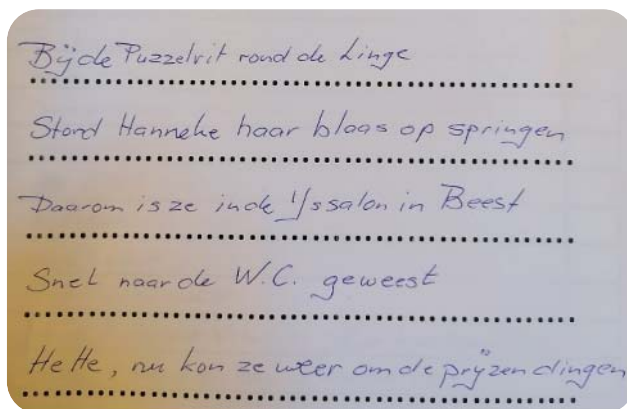 Bij de Puzzelrit rond de Linge
Stond Hanneke haar blaas op springen
Daarom is ze in de IJssalon in Beest
Snel naar de W.C. geweest
He He, nu kon ze weer om de prijzen dingen